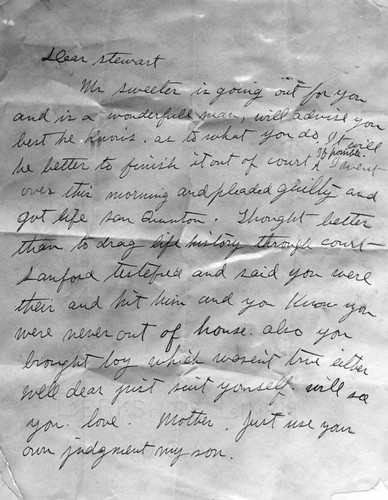 Dear stewart
Mr sweeter is going out for you
and is a wonderfull man, will advise you
best he knows. as to what you do It will
be better to finish it out of court if possible. I went
over this morning and pleaded ghilty and
got life san Quinton. Thought better
than to drag life history through court
Sanford testefied and said you were
their and hit him and you Know you
were never out of house. also you
brought boy which wasent true either
well dear just suit yourself. will see
you. love. Mother. Just use your
own judgment my son.